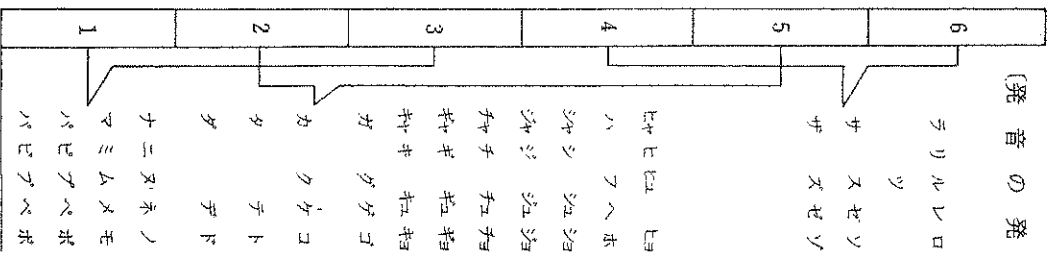 〔発音の発
6
5
4
3
2
1
ラリルレロ
ツ
サ スセソ
ザ ズゼゾ
ヒャヒヒュ ヒョ
ハ フヘホ
シャシ シュショ
ジャジ ジュジョ
チャチ チュチョ
ギャギ ギュギョ
キャキ キュキョ
ガ グゲゴ
カ クケコ
タ テト
ダ デド
ナニヌネノ
マミムメモ
バビブベボ
パピプペポ